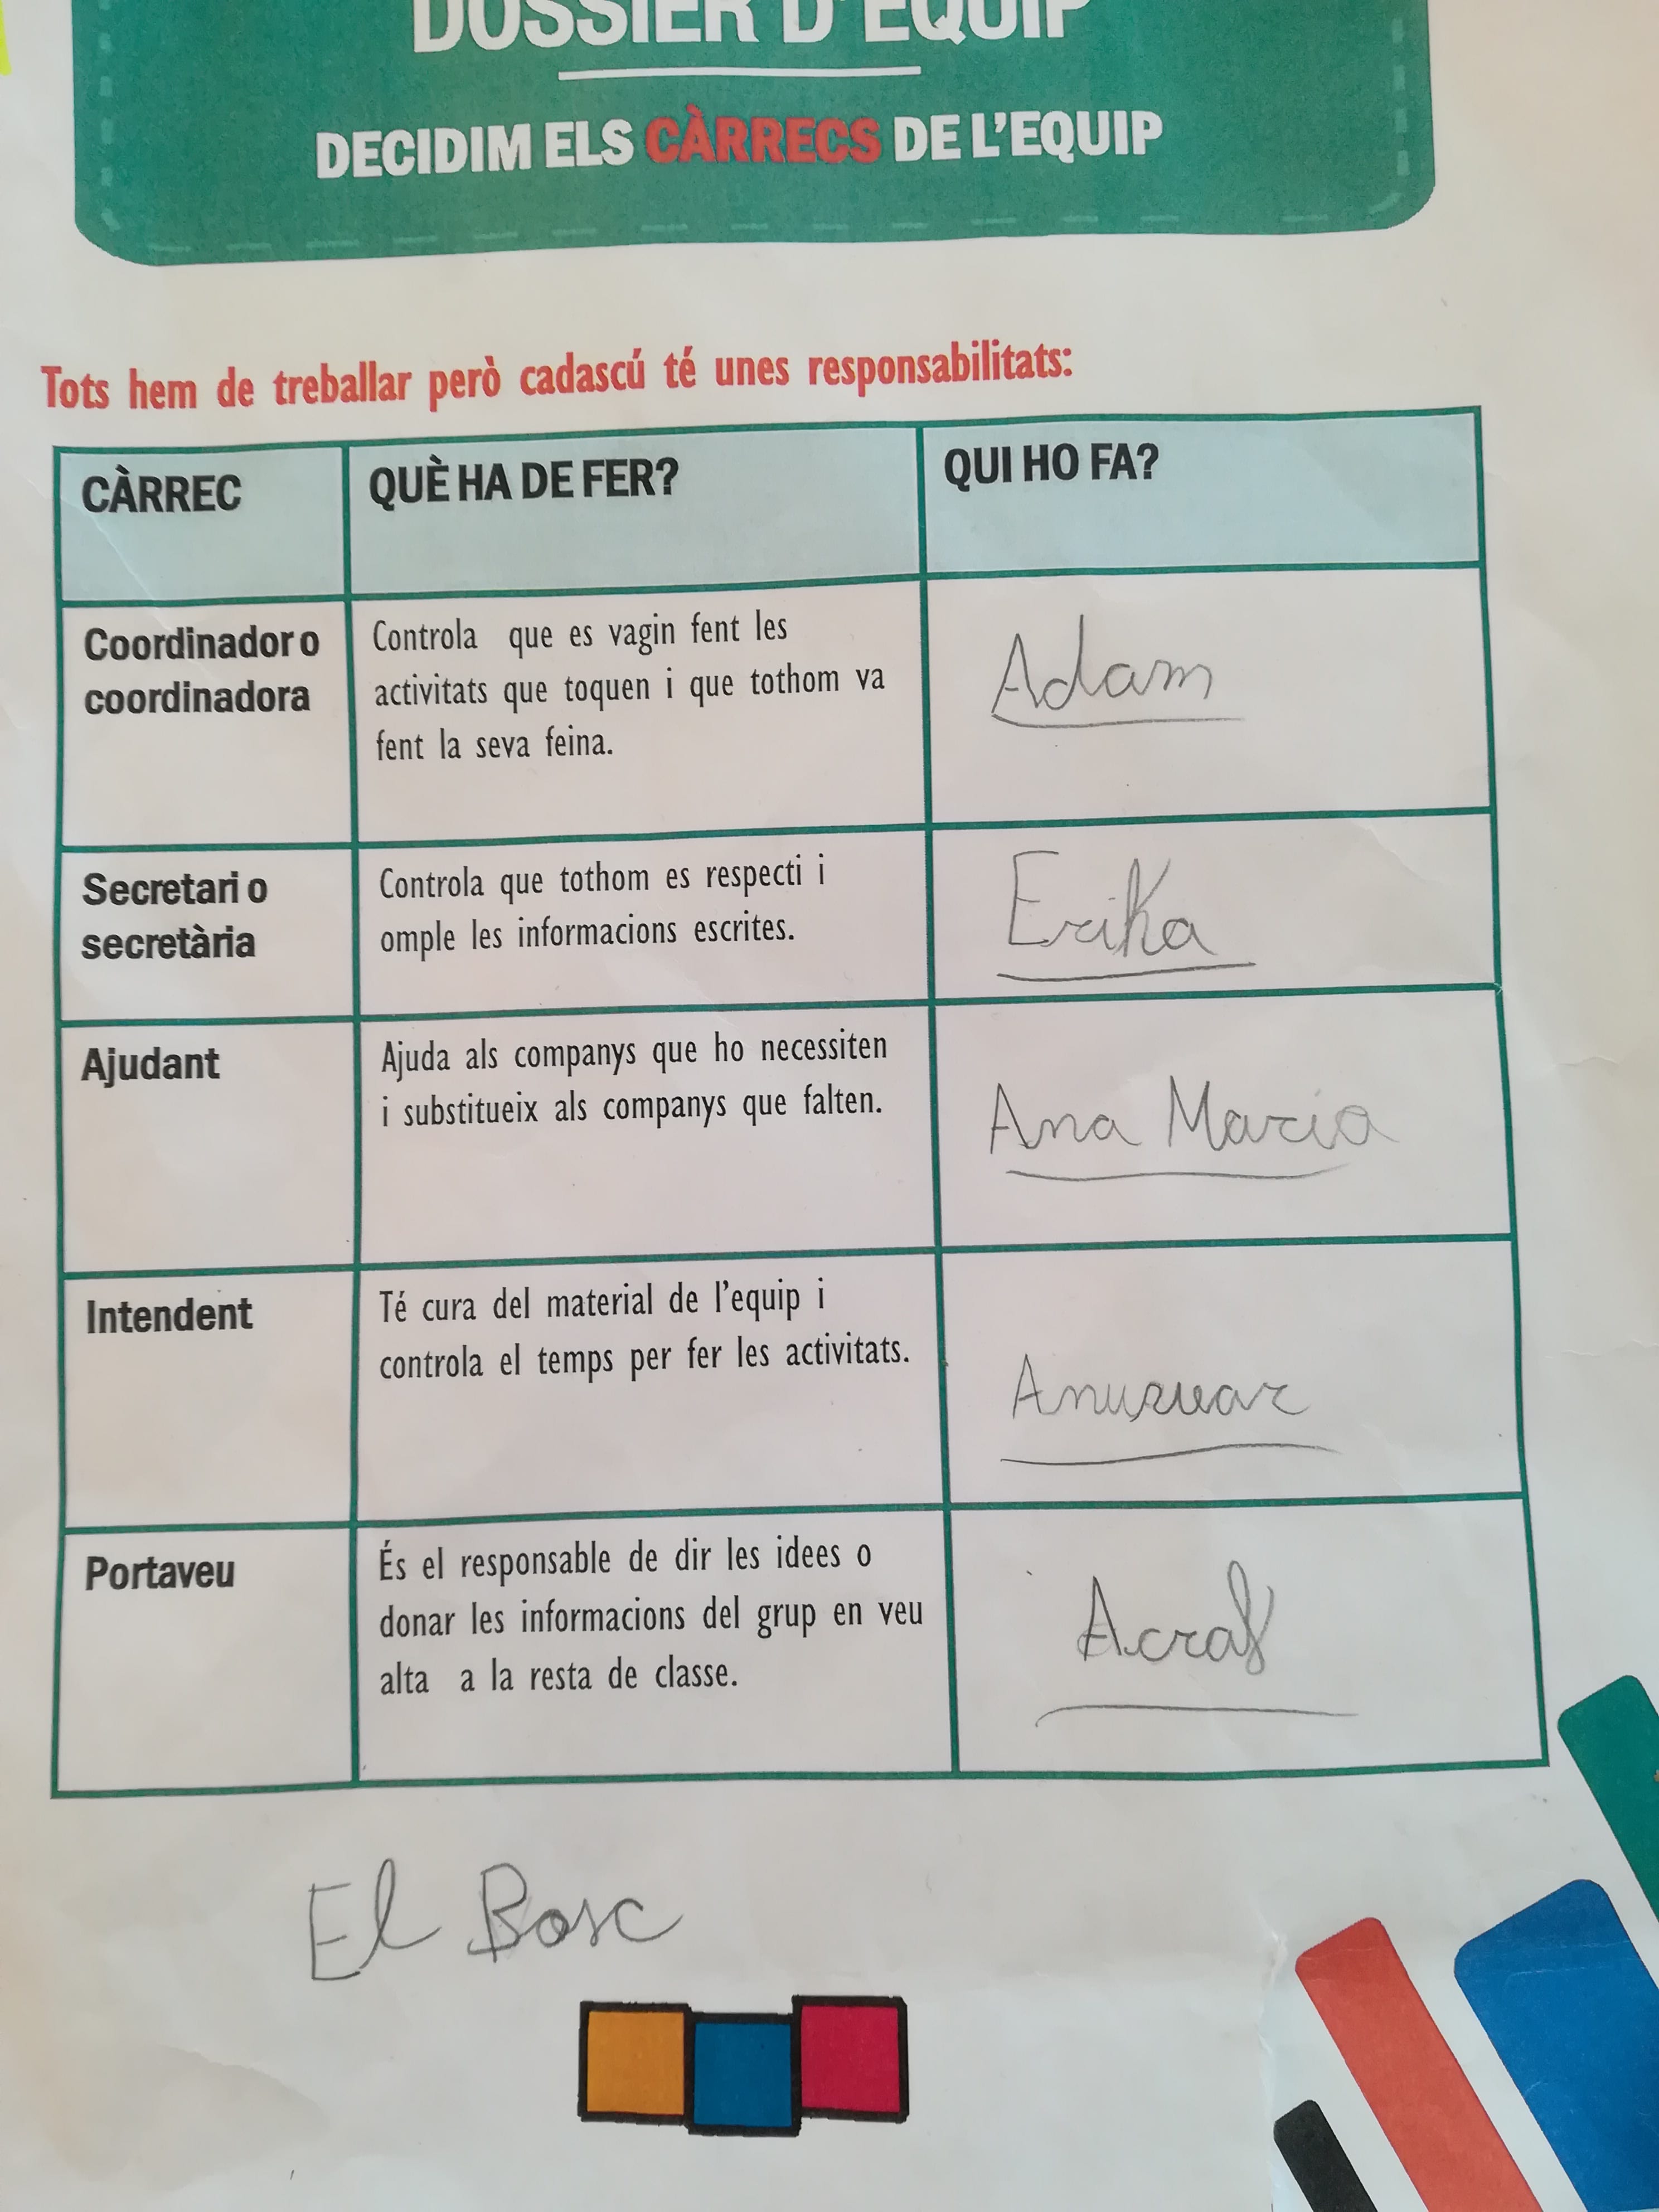 DOSSIER D'EQUIP
DECIDIM ELS CÀRRECS DE L'EQUIP
Tots hem de treballar però cadascú té unes responsabilitats:
CÀRREC
QUÈ HA DE FER?
QUI HO FA?
Coordinador o
coordinadora
Controla que es vagin fent les
activitats que toquen i que tothom va
fent la seva feina.
Adam
Secretari o
secretària
Controla que tothom es respecti i
omple les informacions escrites.
Erika
Ajudant
Ajuda als companys que ho necessiten
i substitueix als companys que falten.
Ana Maria
Intendent
Té cura del material de l'equip i
controla el temps per fer les activitats.
Portaveu
És el responsable de dir les idees o
donar les informacions del grup en veu
alta a la resta de classe.
Acraf
El Bosc